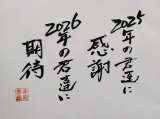 2025年の君達に
感謝
2026年の君達に
期待